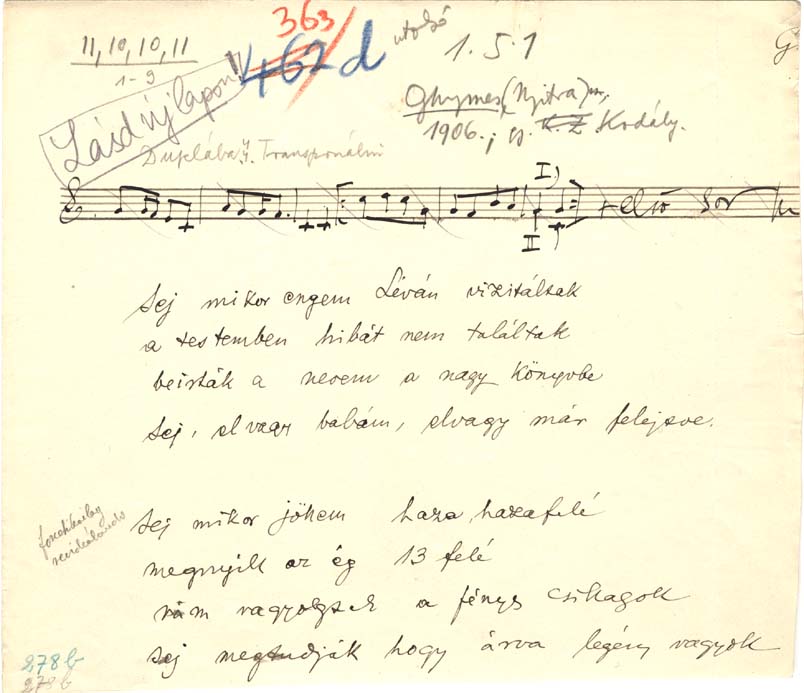 11, 10, 10, 11
1-9
363
462 d
utolsó
1.5.1
G
Lásd új lapon!!
Ghymes (Nyitra) m.
1906.; gy. K. Z. Kodály.
Duplába Transponálni
I)
+ első sor
II)
Sej mikor engem Léván vizitáltak
a testemben hibát nem találtak
beirták a nevem a nagy könyvbe
Sej, el vagy babám, elvagy már felejtve.
Sej mikor jöhem haza hazafelé
megnyilk az ég 13 felé
rám vagyogtak a fényes csillagok
sej megtudják hogy árva legény vagyok
278 b
278 b